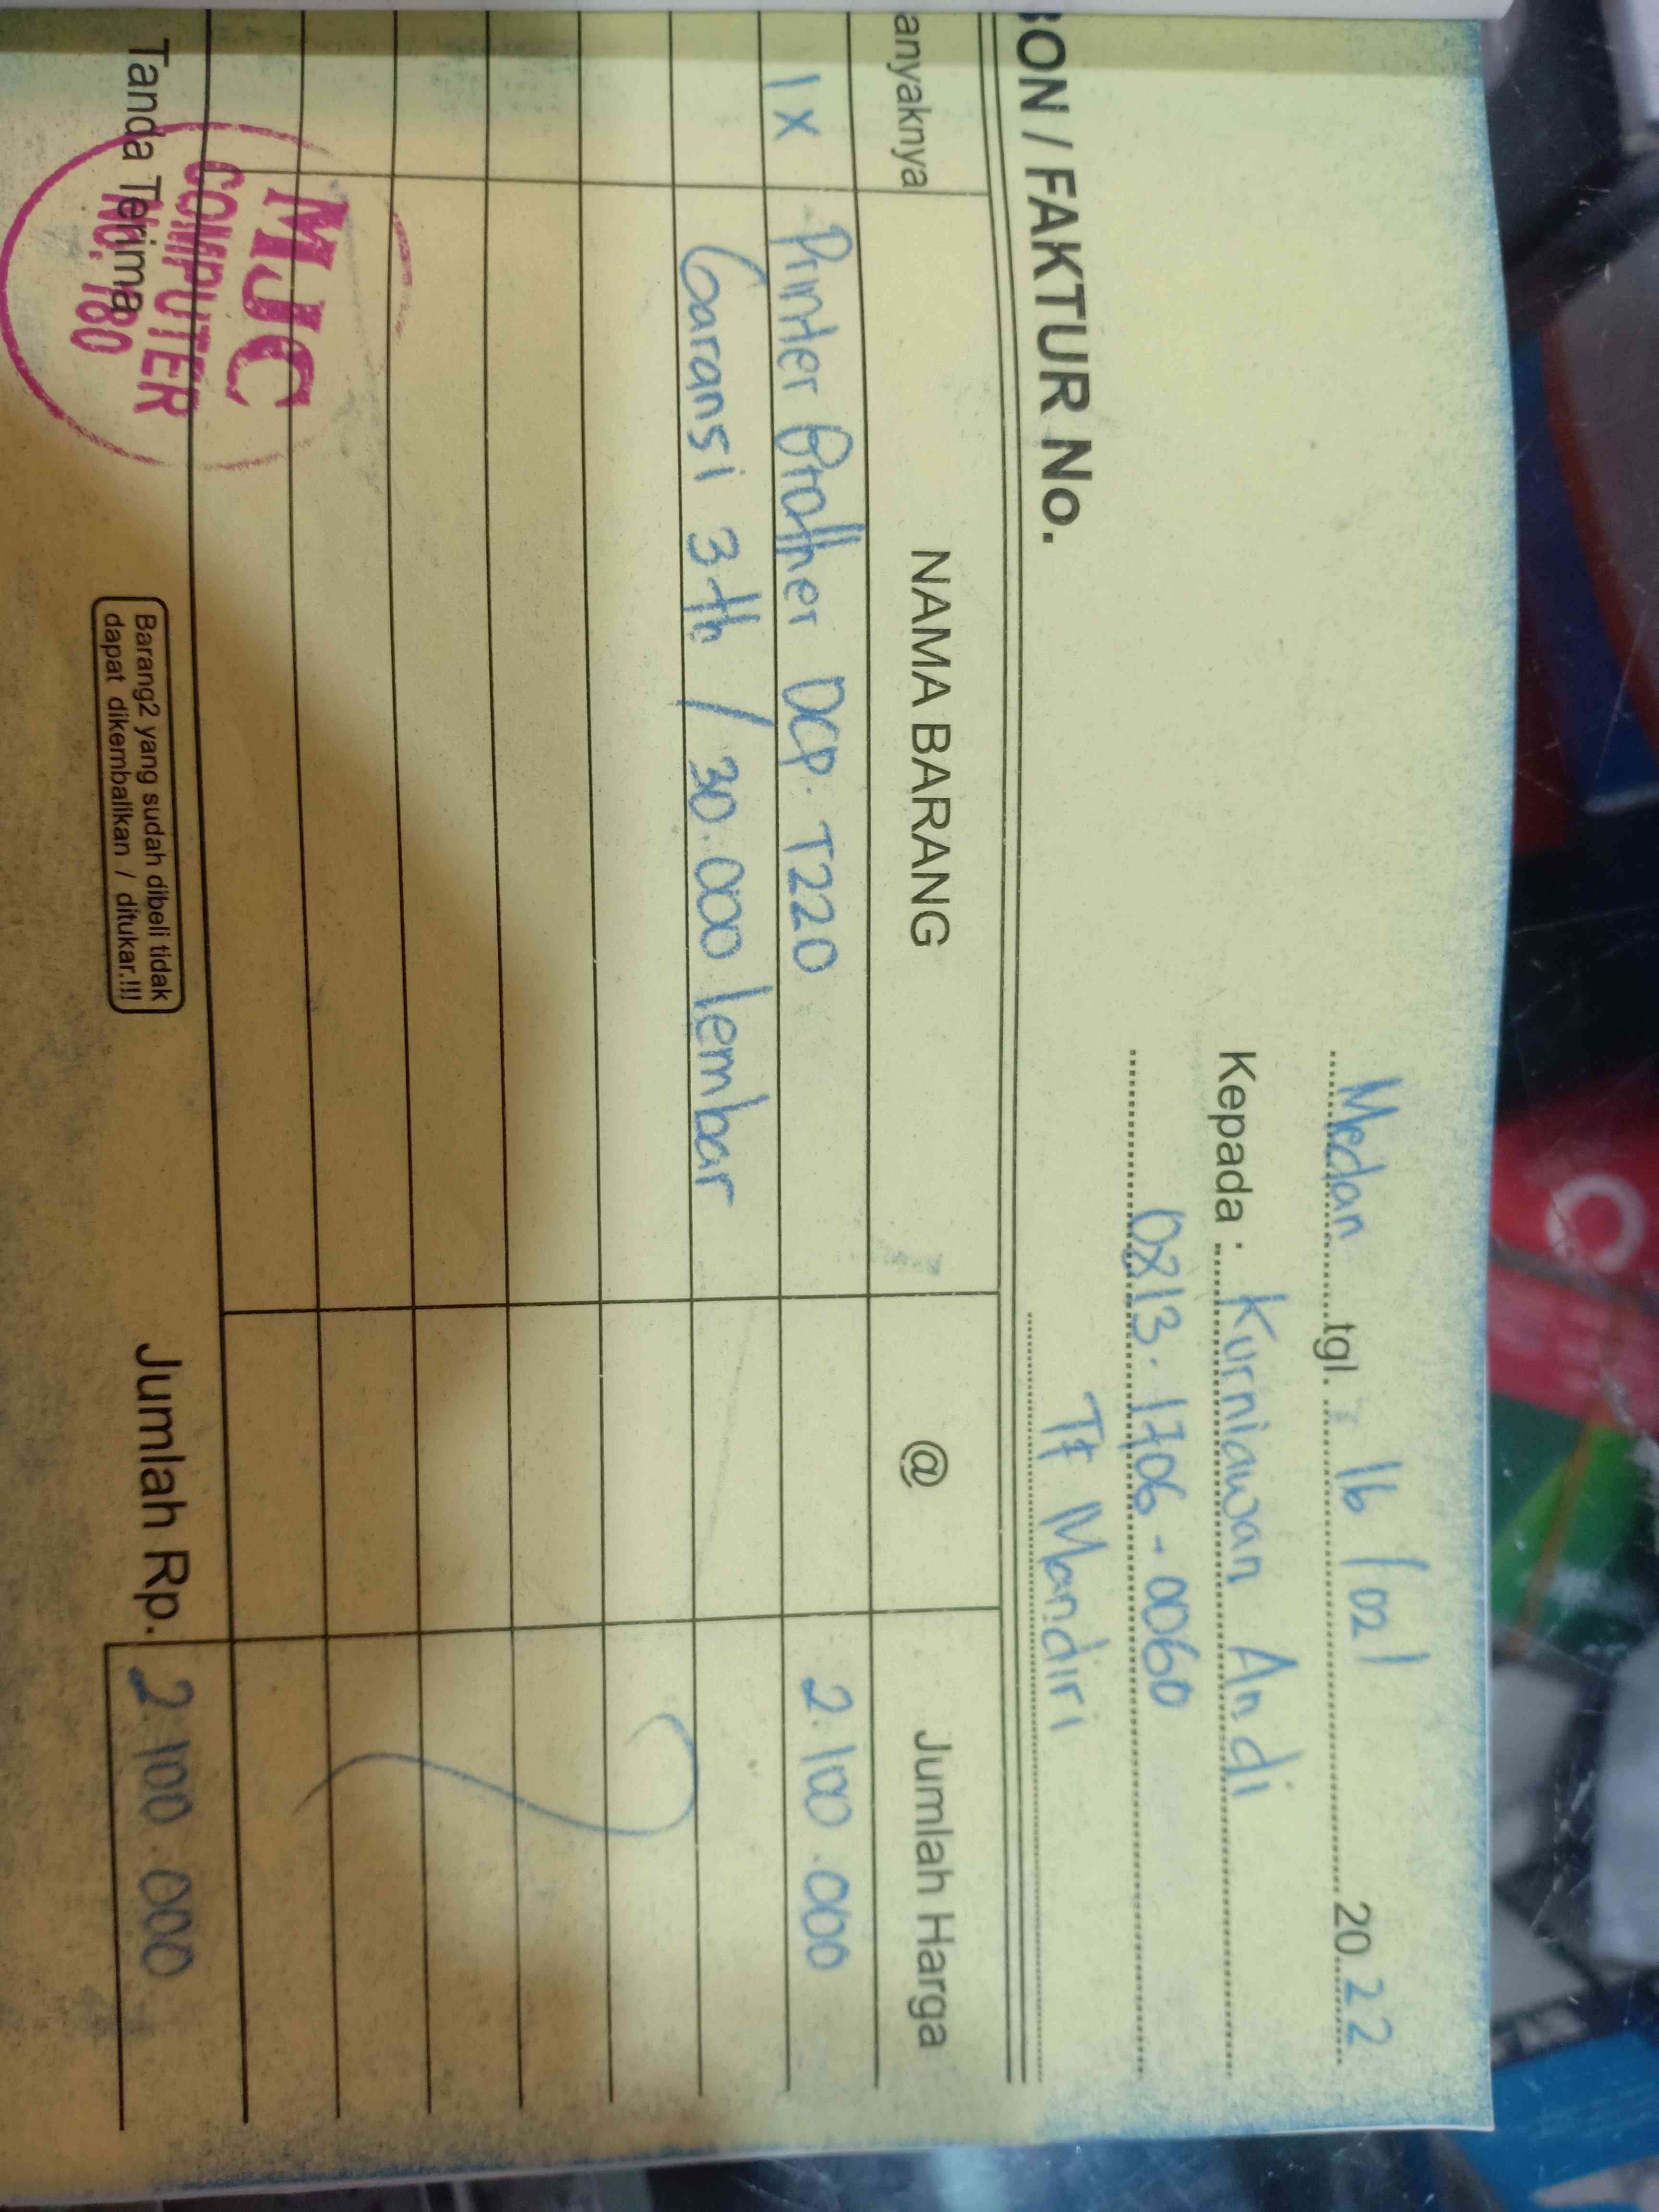 Medan tgl. 16/02/ 2022
Kepada : Kurniawan Andi
0813.1706-0060
BON / FAKTUR No.
Tf Mandiri
anyaknya NAMA BARANG @ Jumlah Harga
1x Printer Brother DCP. T220 2.100.000
Garansi 3 th / 30.000 lembar
Tanda Terima
MJC
COMPUTER
NO. 180
Barang2 yang sudah dibeli tidak
dapat dikembalikan / ditukar.!!!
Jumlah Rp. 2.100.000